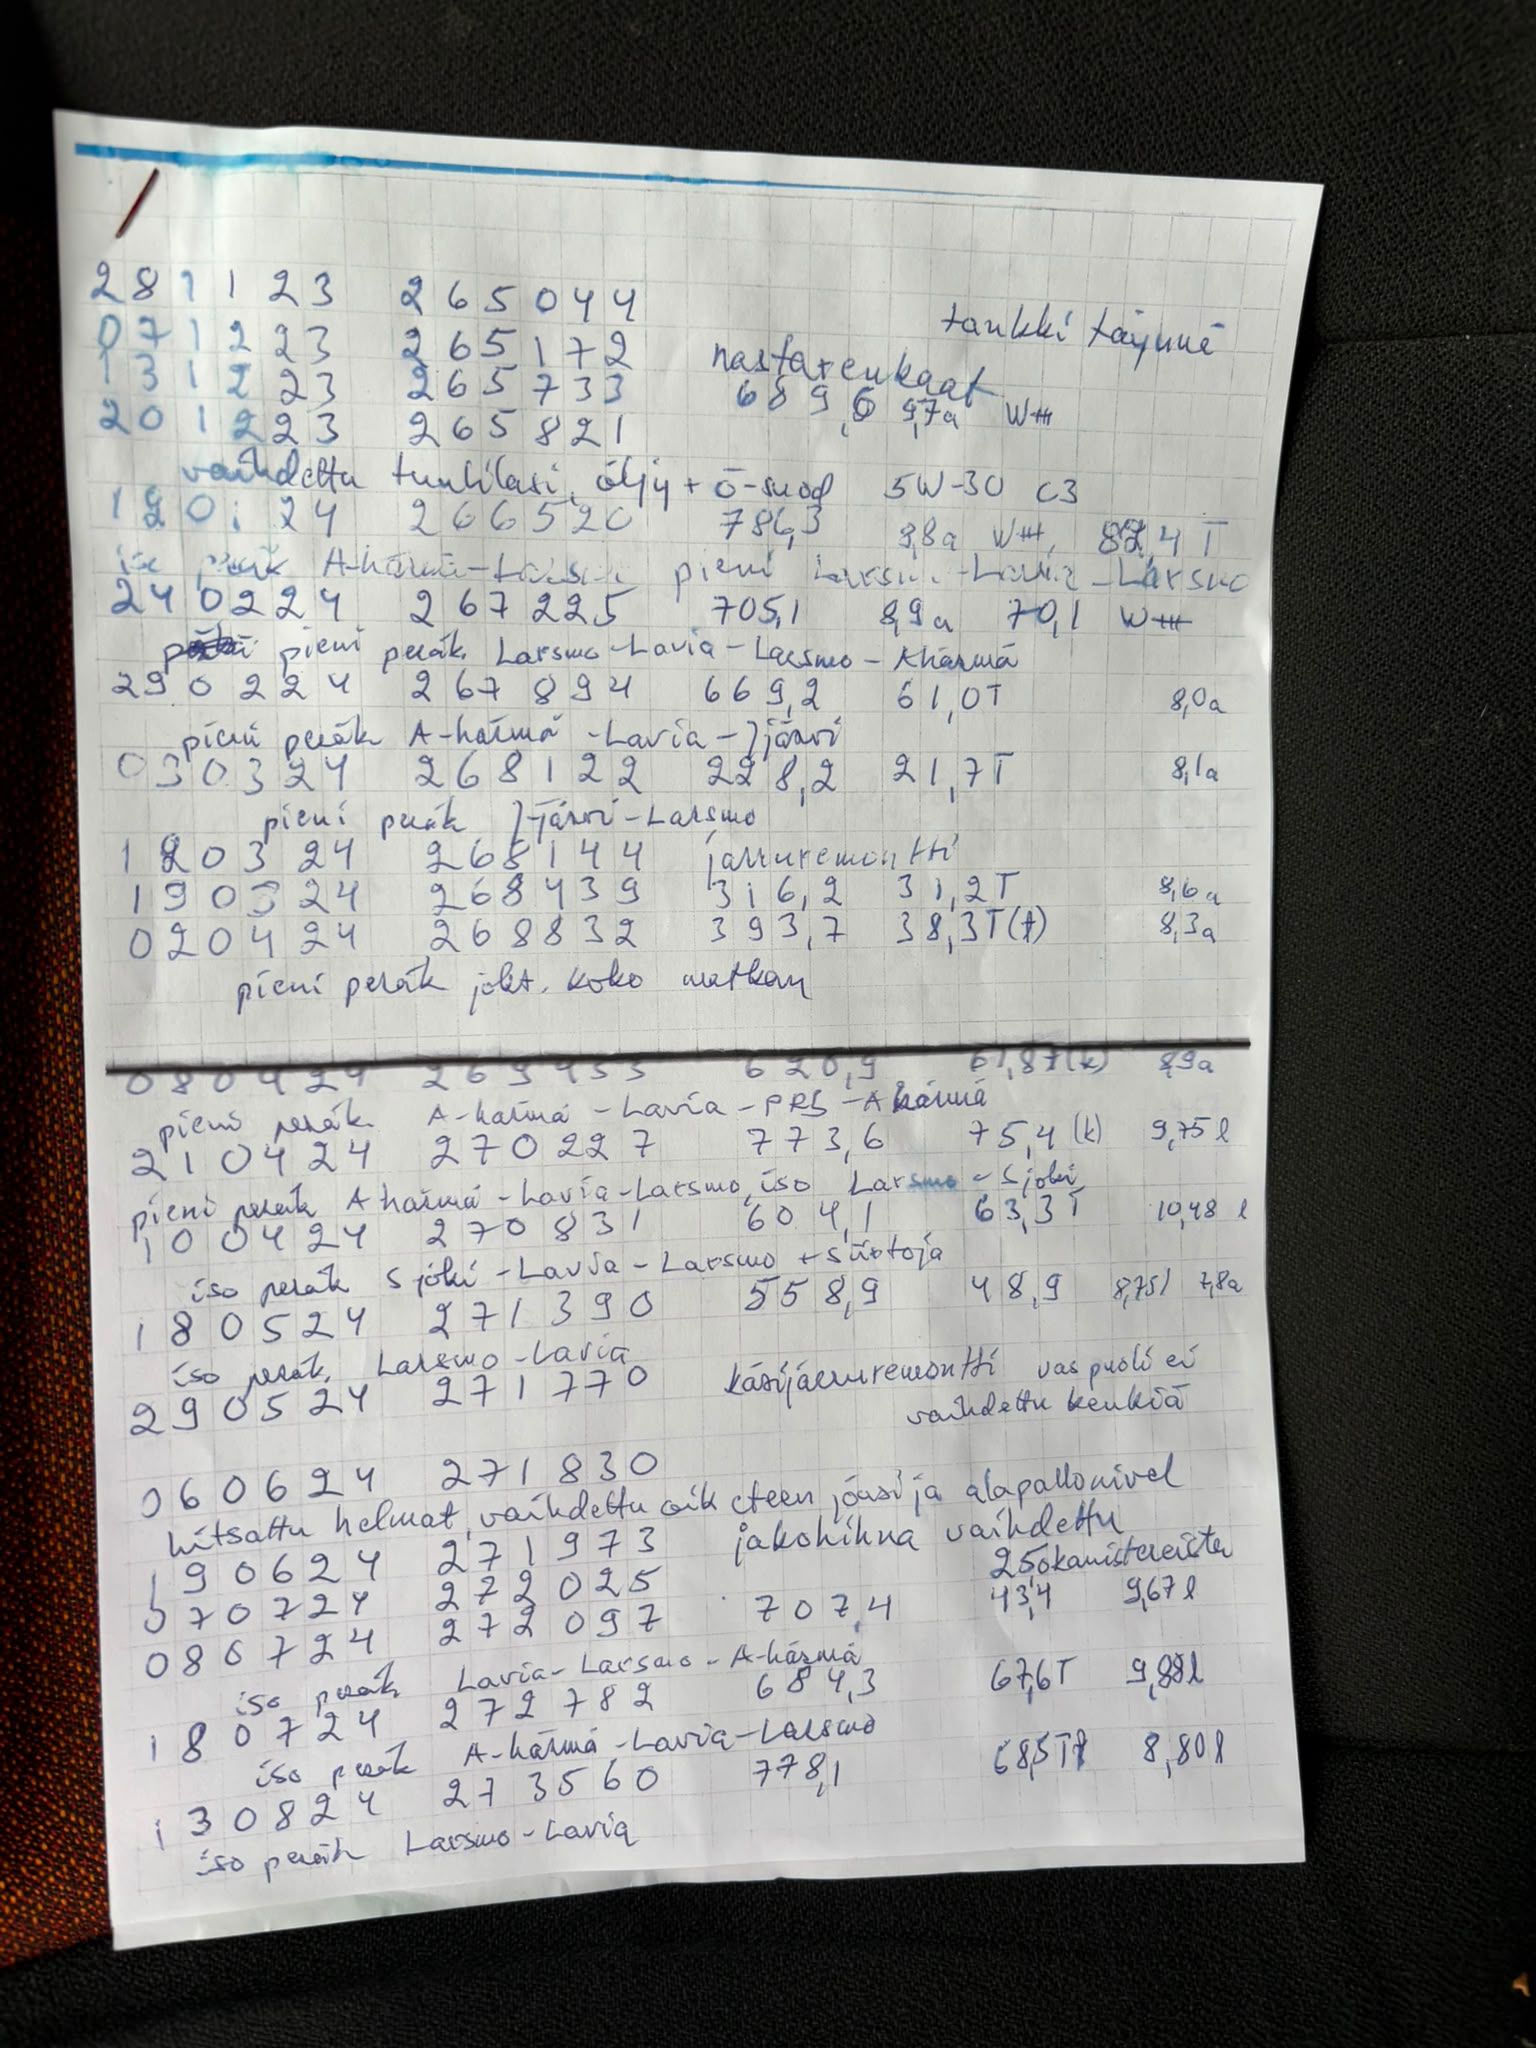 281123 265044 tankki täynnä
071223 265172 nastarenkaat
131223 265733 689,6 9,7a W
201223 265821
vaihdettu tuulilasi, öljy + ö-suod 5W-30 C3
266520 786,3 9,8a W 82,4 T
A-härmä - pieni - Larsmo
240224 267225 705,1 8,9a 70,1 W
pieni peräk Larsmo-Lavia-Larsmo-Ahärmä
290224 267894 669,2 61,0T 8,0a
pieni peräk A-härmä-Lavia-Jjärvi
030324 268122 228,2 21,7T 8,1a
pieni peräk J-järvi-Larsmo
120324 268144 jarruremontti
190324 268439 316,2 31,2T 8,6a
020424 268832 393,7 38,3T(t) 8,3a
pieni peräk jokt. koko matkan
080424 269453 620,9 61,87(k) 8,9a
pieni peräk A-härmä-Lavia-PRS-Ahärmä
210424 270227 773,6 75,4(k) 9,75 l
pieni peräk Ahärmä-Lavia-Larsmo, iso Larsmo-Sjoki
100424 270831 604,1 63,3T 10,48 l
iso peräk Sjoki-Lavia-Larsmo + siirtoja
180524 271390 558,9 48,9 8,75l 7,8a
iso peräk. Larsmo-Lavia
290524 271770 käsijarruremontti vas puoli ei
vaihdettu kenkiä
060624 271830
hitsattu helmat, vaihdettu oik eteen jousi ja alapallonivel
190624 271973 jakohihna vaihdettu
070724 272025 25,0 kanistereista
080724 272097 707,4 43,4 9,67 l
iso peräk Lavia-Larsmo-A-härmä
180724 272782 684,3 67,6T 9,88l
iso peräk A-härmä-Lavia-Larsmo
130824 273560 778,1 68,5T 8,80l
iso peräk Larsmo-Lavia